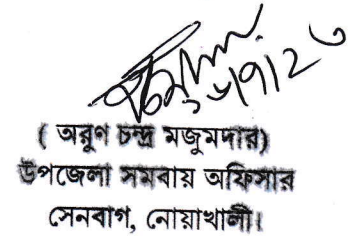 ( অরুণ চন্দ্র মজুমদার)
উপজেলা সমবায় অফিসার
সেনবাগ, নোয়াখালী।